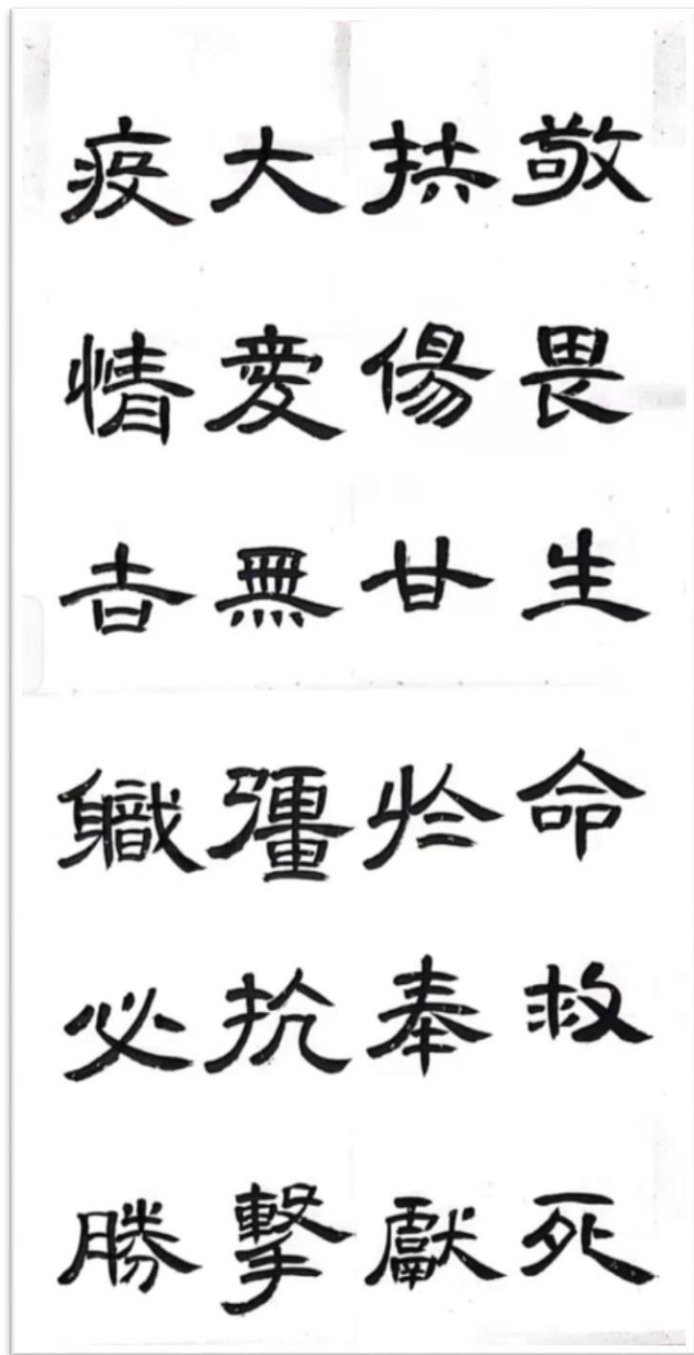 敬畏生命救死
扶傷甘於奉獻
大愛無疆抗擊
疫情告軄必勝